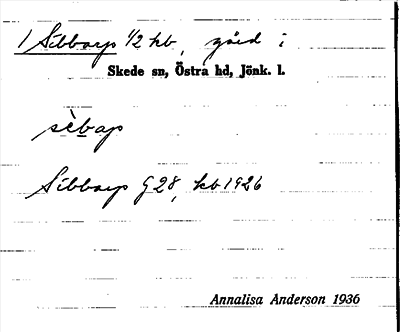 1 Sibbarp 1/2 kb, gård i
Skede sn, Östra hd, Jönk. l.
sèbap
Sibbarp G28, kb 1926
Annalisa Anderson 1936